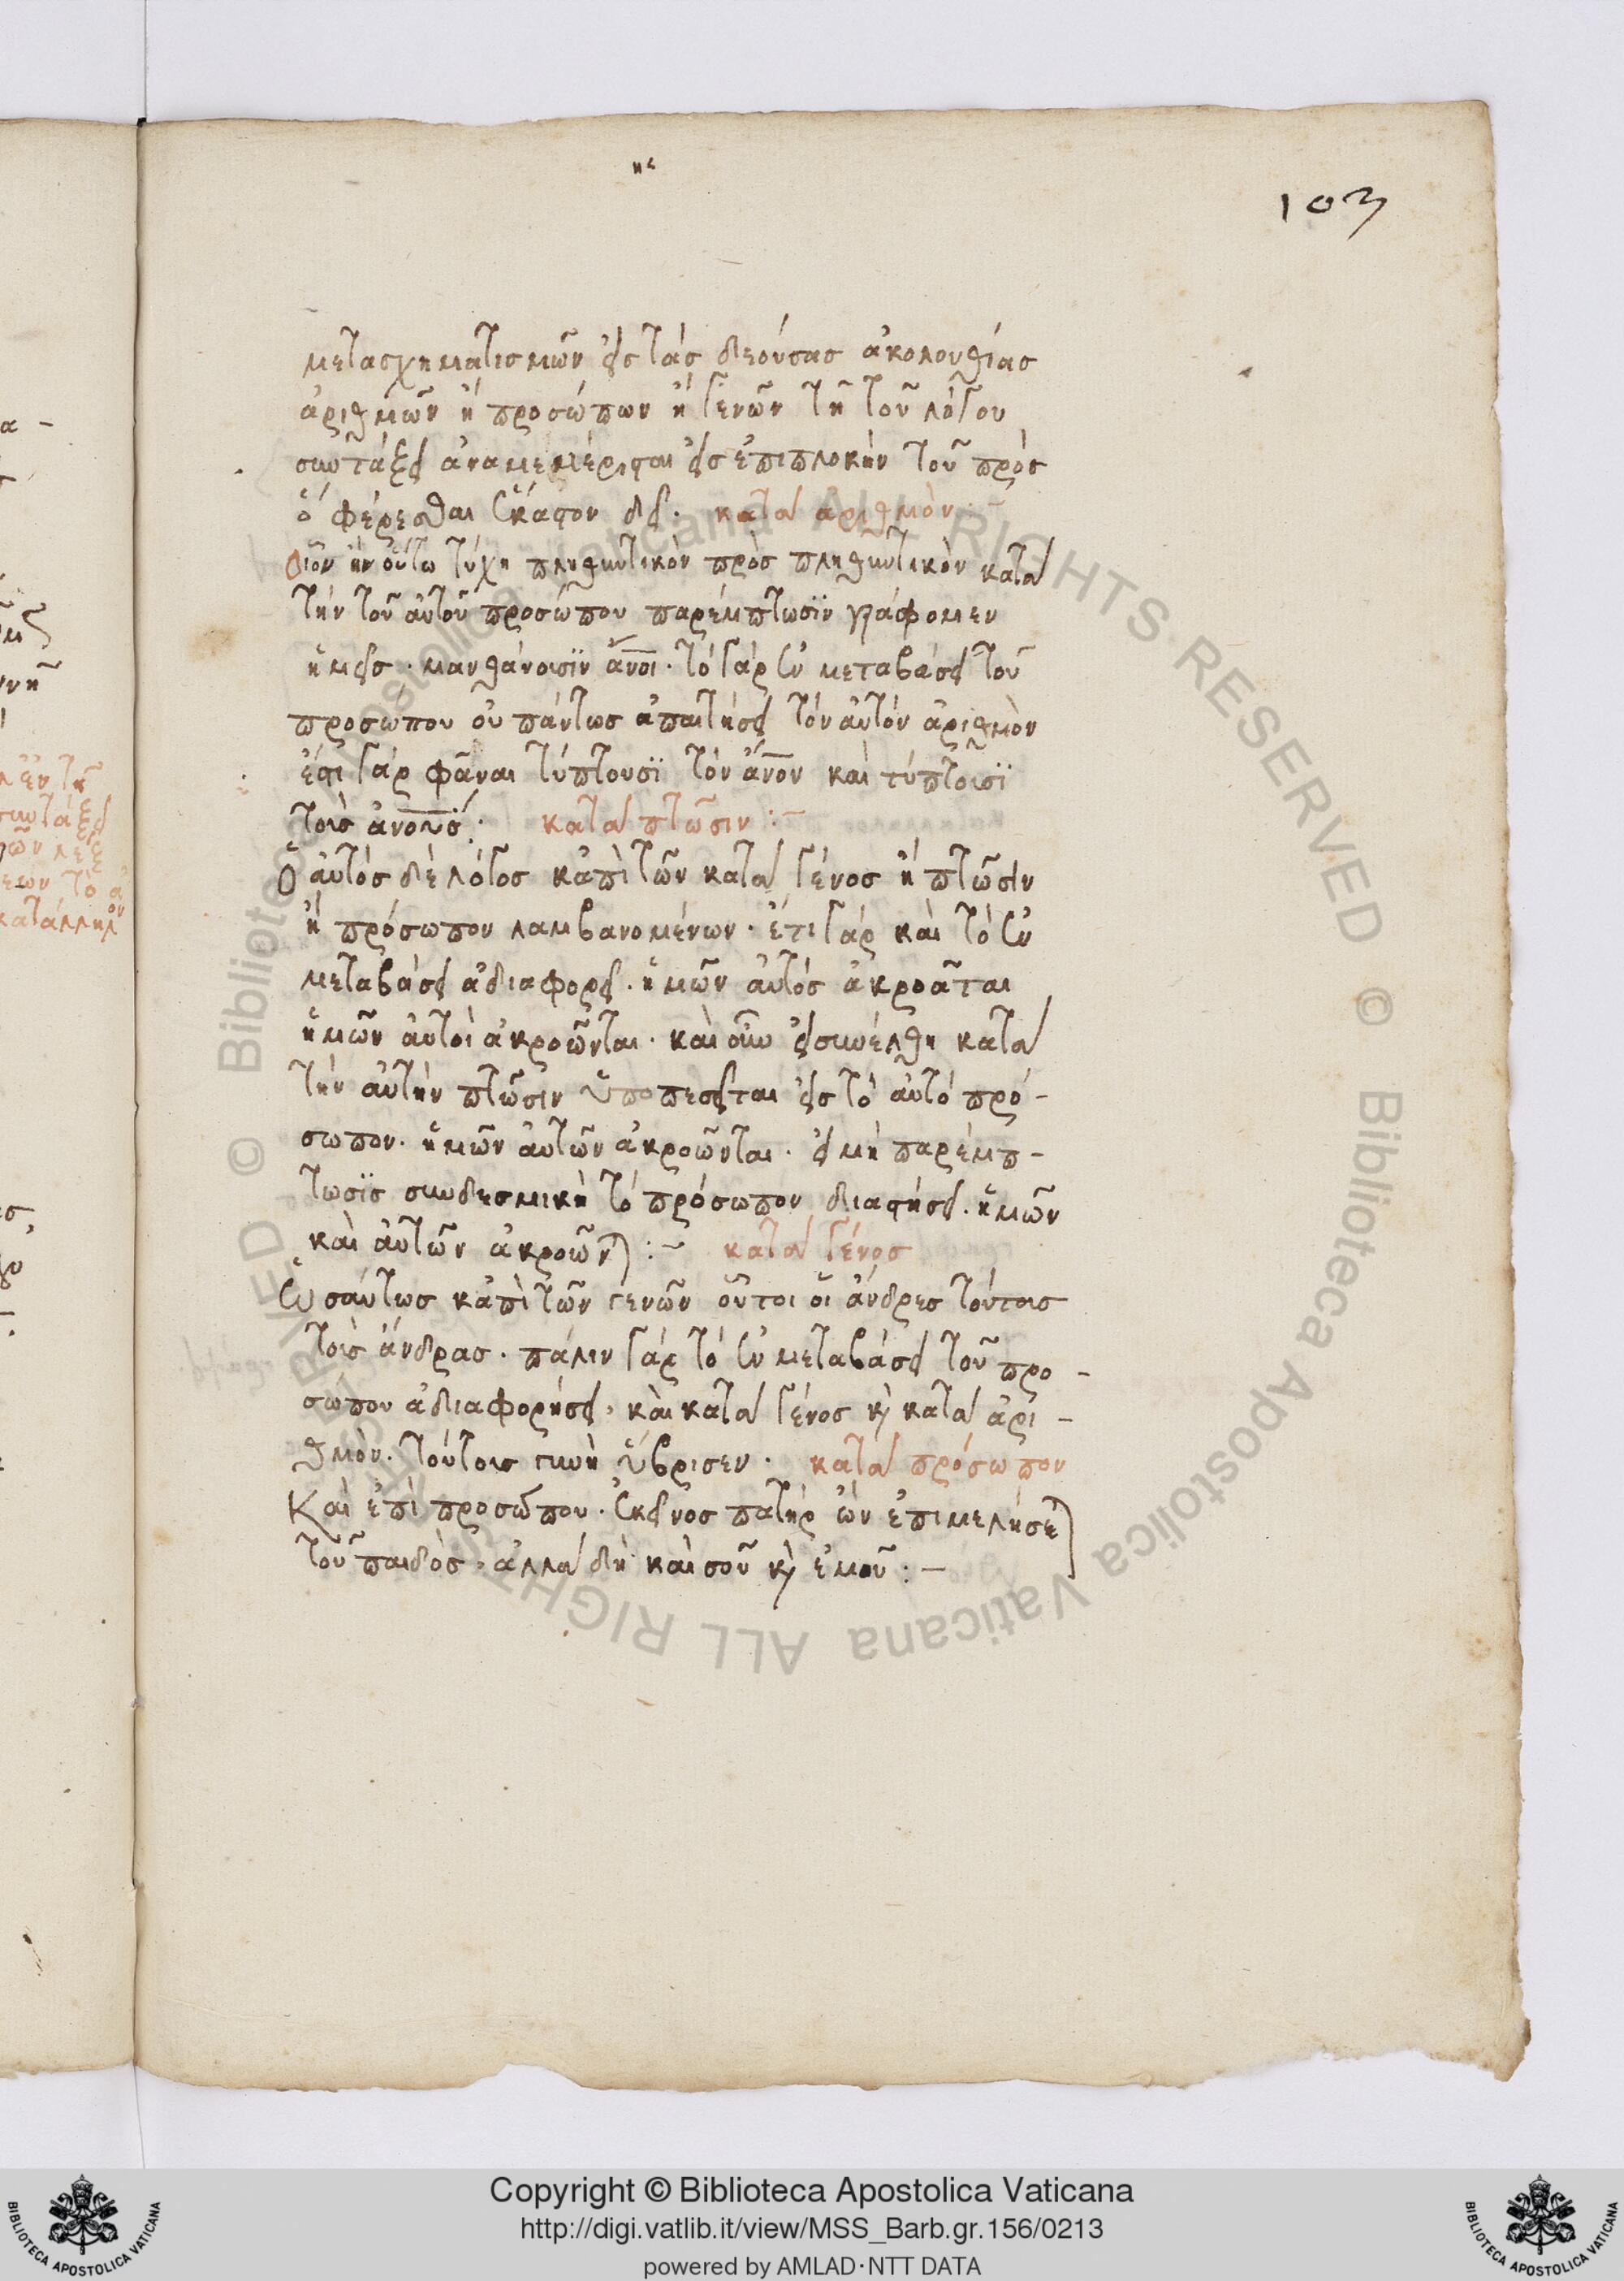 103
μετασχηματισμῶν εἰς τὰς δεούσας ἀκολουθίας
ἀριθμῶν ἢ προσώπων ἢ γενῶν τῆ τοῦ λόγου
συντάξει ἀναμεμέρισται εἰς ἐπιπλοκὴν τοῦ πρὸς
ὃ φέρεσθαι ἕκαστον δεῖ. κατὰ ἀριθμὸν :-
Οἷον ἢν οὕτω τύχη πληθυντικὸν πρὸς πληθυντικὸν κατὰ
τὴν τοῦ αὐτοῦ προσώπου παρέμπτωσϊν γράφομεν
ἡμεῖς. μανθάνουσϊν ἄνοι. τὸ γὰρ ἐν μεταβάσει τοῦ
προσώπου οὐ πάντως ἀπαιτήσει τὸν αὐτὸν ἀριθμὸν
ἔστι γὰρ φᾶναι τύπτουσϊ τὸν ἄνον καὶ τύπτουσϊ
τοὺς ἀνοῦς. κατὰ πτῶσιν :-
Ὁ αὐτὸς δὲ λόγος κἀπὶ τῶν κατὰ γένος ἢ πτῶσϊν
ἢ πρόσωπον λαμβανομένων. ἔτι γὰρ καὶ τὸ ἐν
μεταβάσει ἀδιαφορεῖ. ἡμῶν αὐτὸς ἀκροᾶται
ἡμῶν αὐτοὶ ἀκροῶνται. καὶ οὖν εἰ συνέλθη κατὰ
τὴν αὐτὴν πτῶσιν ὑποπεσεῖται εἰς τὸ αὐτὸ πρό-
σωπον. ἡμῶν αὐτῶν ἀκροῶνται. εἰ μὴ παρέμπ-
τωσϊς συνδεσμικὴ τὸ πρόσωπον διαστήσει. ἡμῶν
καὶ αὐτῶν ἀκροῶνται :~ κατὰ γένος
Ὡσαύτως κἀπὶ τῶν γενῶν οὗτοι οἱ ἄνδρες τούτους
τοὺς ἄνδρας. πάλιν γὰρ τὸ ἐν μεταβάσει τοῦ προ-
σώπου ἀδιαφορήσει, καὶ κατὰ γένος κὴ κατὰ ἀρι-
θμὸν. τούτους γυνὴ ὕβρισεν. κατὰ πρόσωπον
Καὶ ἐπὶ προσώπου. Ἐκεῖνος πατὴρ ὢν ἐπιμελήσεται
τοῦ παιδὸς, ἀλλὰ δὴ καὶ σοῦ κὴ ἐμοῦ :-
Copyright © Biblioteca Apostolica Vaticana
http://digi.vatlib.it/view/MSS_Barb.gr.156/0213
powered by AMLAD·NTT DATA